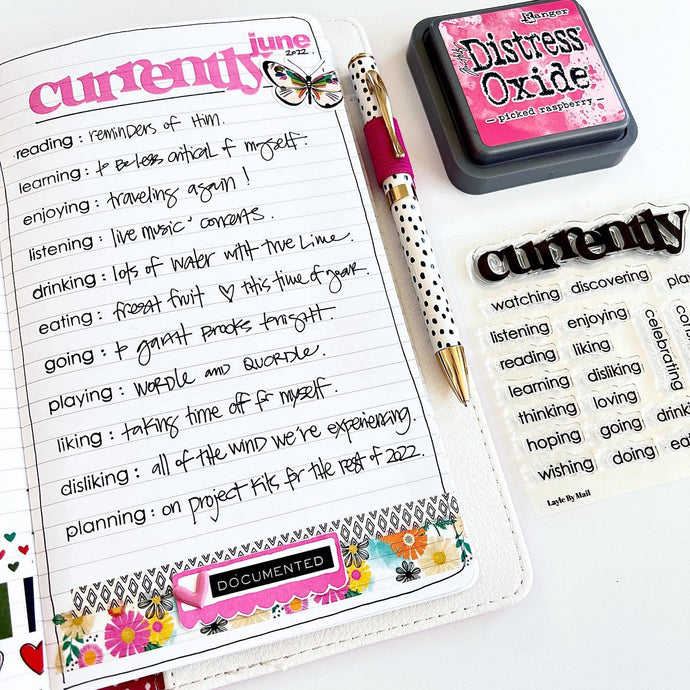 june
2022.
currently
reading : reminders of Him.
learning : to be less critical of myself.
enjoying : traveling again!
listening : live music concerts.
drinking : lots of water with True Lime.
eating : fresh fruit ♡ this time of year.
going : to garth brooks tonight.
playing : WORDLE AND QUORDLE.
liking : taking time off for myself.
disliking : all of the wind we're experiencing.
planning : on project kits for the rest of 2022.
DOCUMENTED
Ranger
Distress
Oxide
picked raspberry
currently
watching discovering
listening enjoying
reading liking
learning disliking
thinking loving
hoping going
wishing doing
celebrating
Layle By Mail